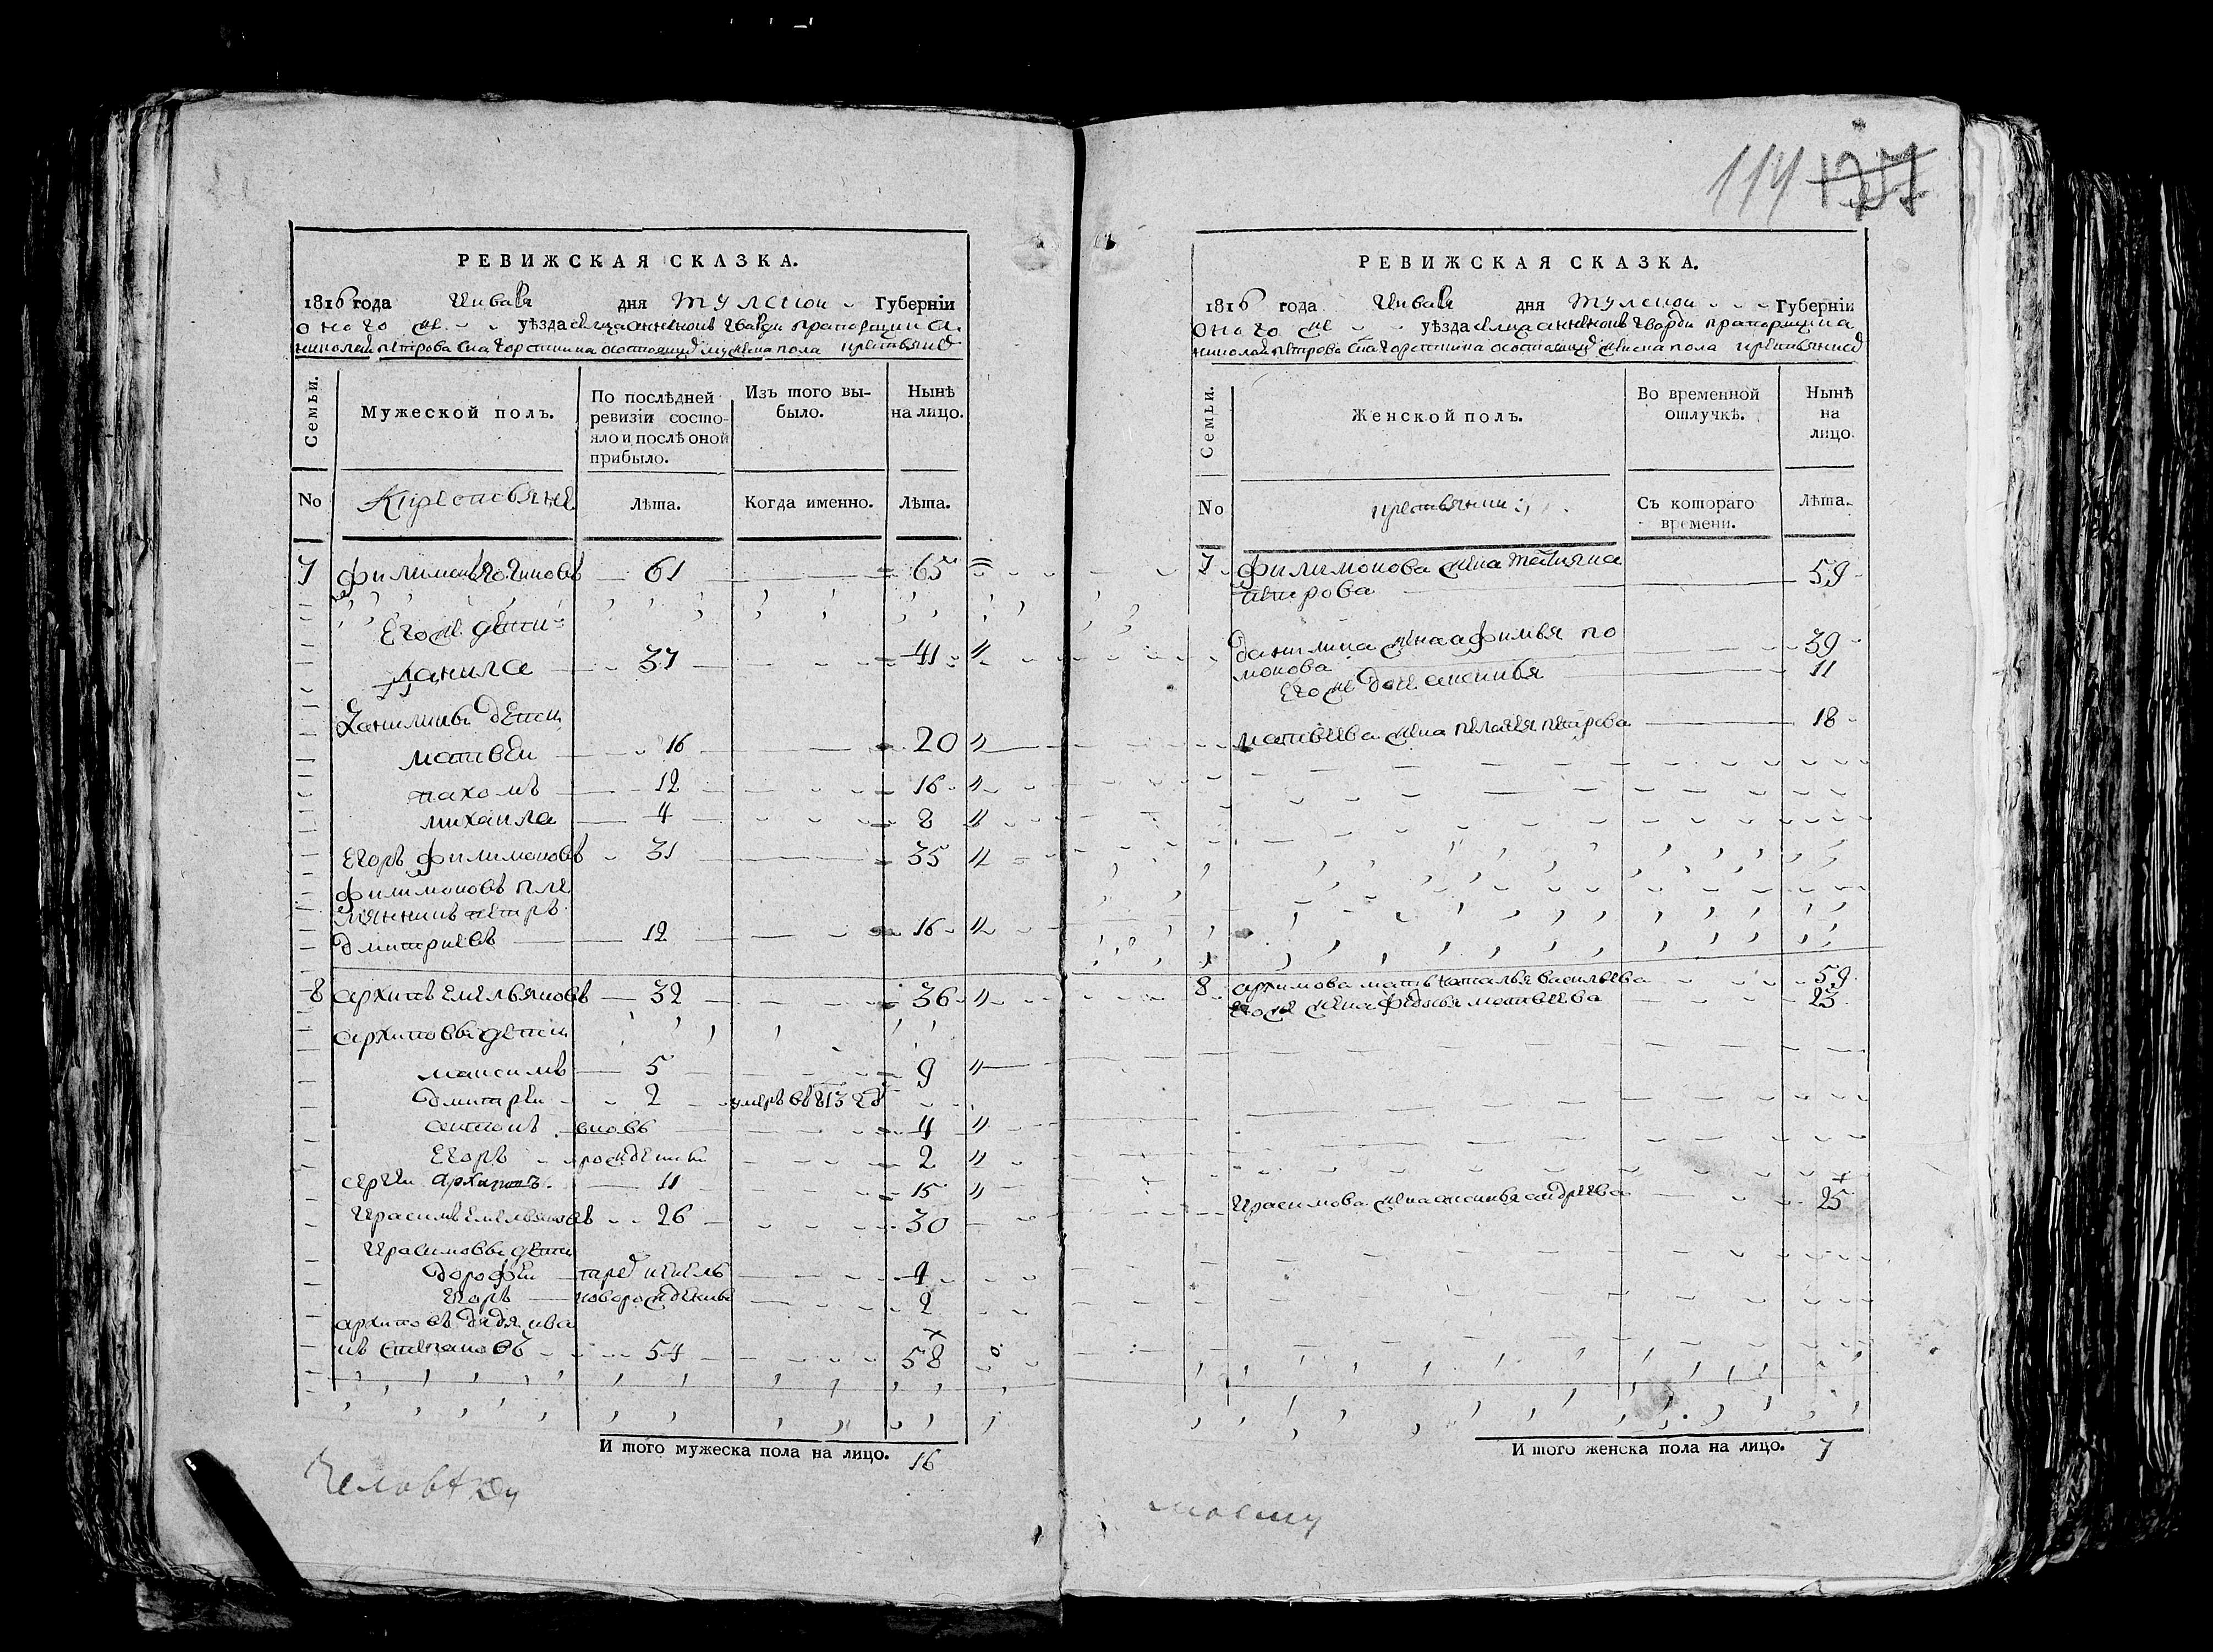 114 127
РЕВИЖСКАЯ СКАЗКА.
1816 года Генваря дня Тулской Губерніи
оного же уѣзда селца Аненковъ гвардіи прапорщика
николая петрова сна хорсткина о состоящихъ мужеска пола крестьянехъ
Семьи.
Мужеской полъ.
По послѣдней ревизіи состояло и послѣ оной прибыло.
Изъ того выбыло.
Нынѣ на лицо.
No
Крестьяне
лѣта.
Когда именно.
Лѣта.
7 филимонъ 61 65
Егоже дети
Данила 37 41
Данилины дети
матвеи 16 20
пахомъ 12 16
михаила 4 8
Егоръ филимоновъ 31 35
филимоновъ пле
мянникъ петръ
дмитриевъ 12 16
8 архипъ емельяновъ 32 36
архиповы дети
максимъ 5 9
дмитреи 2 умеръ въ 813 год
антонъ вновь 4
Егоръ рожденны 2
сергеи архипов. 11 15
герасимъ емельяновъ 26 30
герасимовы дети
дорофеи 4
Егоръ новорожденны 2
архиповъ дядя ива
нъ степановъ 54 58
И того мужеска пола на лицо. 16
Человѣку
РЕВИЖСКАЯ СКАЗКА.
1816 года Генваря дня Тулской Губерніи
оного же уѣзда селца Аненковъ гвардіи прапорщика
николая петрова сна хорсткина о состоящихъ женска пола крестьянкахъ
Семьи.
Женской полъ.
Во временной отлучкѣ.
Нынѣ на лицо.
No
крестьянки
Съ котораго времени.
Лѣта.
7 филимонова жена татьяна
петрова 59
данилина жена афимья по
монова 39
Егоже доче аксинья 11
матвеева жена пелагея петрова 18
8 архипова мать наталья васильева 59
Егоже жена федосья матвеева 23
герасимова жена аксинья андреева 25
И того женска пола на лицо. 7
моему